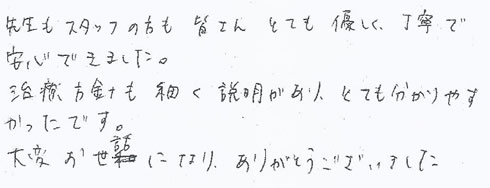 先生もスタッフの方も皆さんとても優しく、丁寧で
安心できました。
治療方針も細く説明があり、とても分かりやす
かったです。
大変お世話になり、ありがとうございました